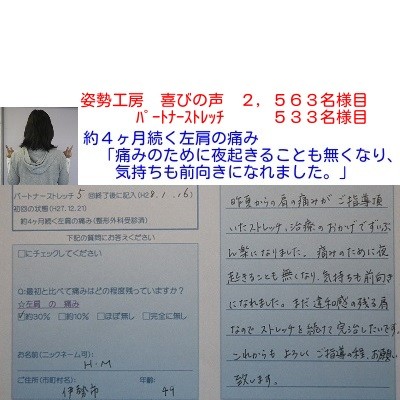 姿勢工房　喜びの声　２，５６３名様目
ﾊﾟｰﾄﾅｰｽﾄﾚｯﾁ　５３３名様目
約４ヶ月続く左肩の痛み
「痛みのために夜起きることも無くなり、
気持ちも前向きになれました。」
パートナーストレッチ 5 回終了後に記入 (H28.1.16)
初回の状態(H27.12.21)
約4ヶ月続く左肩の痛み(整形外科受診済)
下記の質問にお答えください
□にチェックしてください
Q:最初と比べて痛みはどの程度残っていますか?
☆左肩 の 痛み
☑約30% □約10% □ほぼ無し □完全に無し
お名前(ニックネーム可):
H・M
ご住所(市町村名): 年齢:
伊勢市 49
昨夏からの肩の痛みが ご指導頂
いたストレッチ、治療のおかげでずいぶ
ん楽になりました。痛みのために夜
起きることも無くなり、気持ちも前向き
になれました。まだ違和感の残る肩
なので ストレッチを続けて完治したいです。
これからも よろしく ご指導の程、お願い
致します。